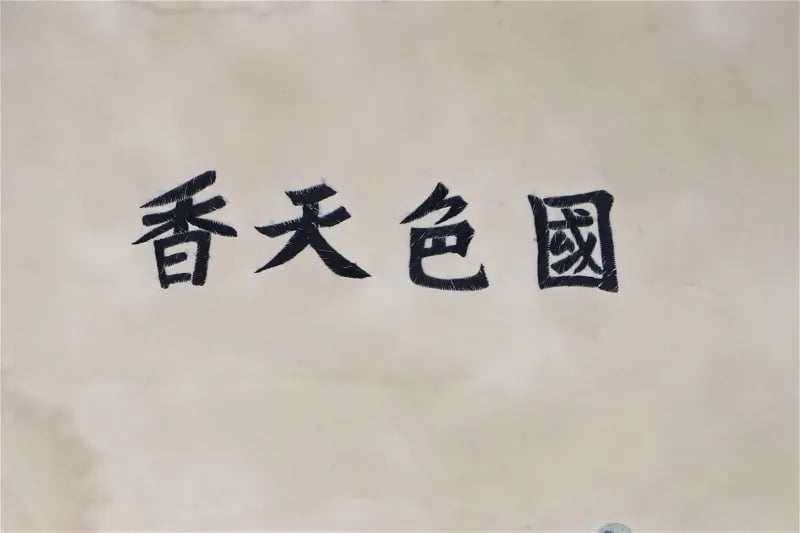 國色天香